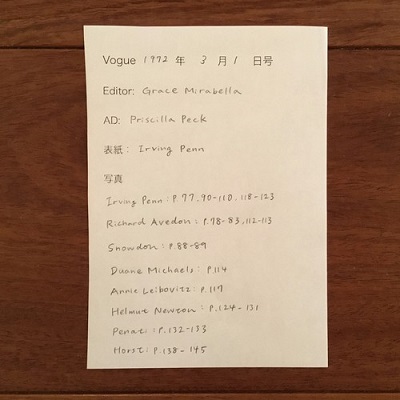 Vogue 1972 年 3 月 1 日号
Editor: Grace Mirabella
AD: Priscilla Peck
表紙: Irving Penn
写真
Irving Penn: p.77, 90-110, 118-123
Richard Avedon: p.78-83, 112-113
Snowdon: p.88-89
Duane Michaels: p.114
Annie Leibovitz: p.117
Helmut Newton: p.124-131
Penati: p.132-133
Horst: p.138-145